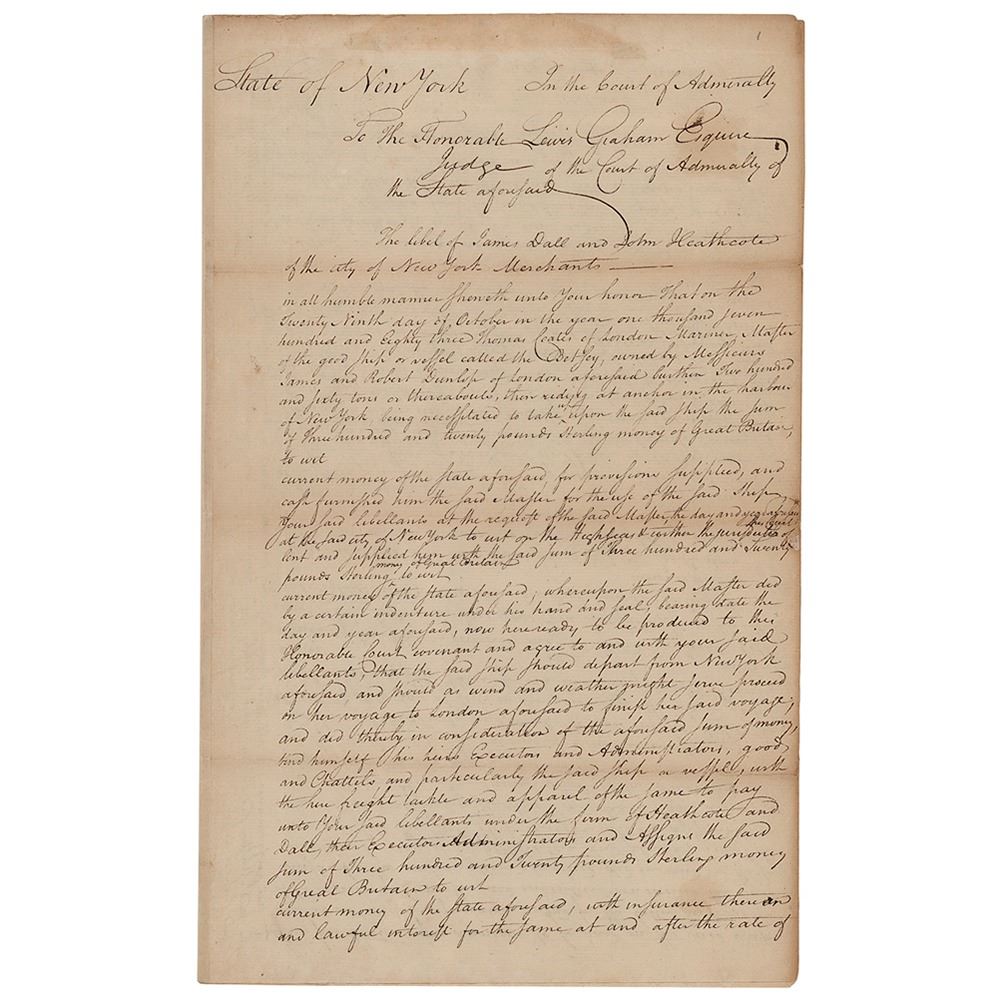 1
State of New York In the Court of Admiralty
To The Honorable Lewis Graham Esquire
Judge of the Court of Admiralty of
the State aforesaid
The libel of James Dall and John Heathcote
of the city of New York Merchants
in all humble manner Sheweth unto Your honor That on the
Twenty Ninth day of October in the year one thousand seven
hundred and Eighty three Thomas Coates of London Mariner, Master
of the good ship or vessel called the Betsey, owned by Messieurs
James and Robert Dunlop of London aforesaid burthen Two hundred
and sixty tons or thereabouts, then riding at anchor in the harbour
of New York being necessitated to take upon the said ship the sum
of Three hundred and twenty pounds Sterling money of Great Britain,
to wit
current money of the state aforesaid, for provisions supplied, and
cash furnished him the said Master for the use of the said Ship
Your said libellants at the request of the said Master, the day and year aforesaid
at the said city of New York to wit on the High seas & within the jurisdiction of this Court
lent and supplied him with the said sum of Three hundred and Twenty
pounds Sterling money of Great Britain to wit
current money of the State aforesaid; whereupon the said Master did
by a certain indenture under his hand and seal bearing date the
day and year aforesaid, now here ready to be produced to this
Honorable Court covenant and agree to and with your said
libellants, that the said ship should depart from New York
aforesaid and should as wind and weather might serve proceed
on her voyage to London aforesaid to finish her said voyage;
and did thereby in consideration of the aforesaid sum of money,
bind himself his heirs Executors and Administrators, goods
and Chattels and particularly the said ship or vessel, with
the freight tackle and apparel of the same to pay
unto Your said libellants under the firm of Heathcote and
Dall, their Executors Administrators and Assigns the said
sum of Three hundred and Twenty pounds Sterling money
of Great Britain to wit
current money of the State aforesaid, with insurance thereon
and lawful interest for the same at and after the rate of